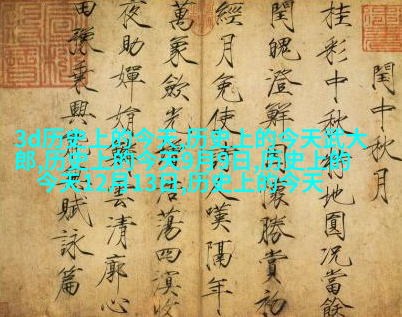 3d历史上的今天,历史上的今天武大
郎,历史上的今天9月9日,历史上的
今天12月13日,历史上的今天
閏中秋月
桂彩中秋地圓況當餘
閏魄澄鮮懷勝賞初
經月免使人嘆隔年
萬象斂光浩蕩四溟收
夜助嬋娟雲清廓心
田豫乘興賦詠篇